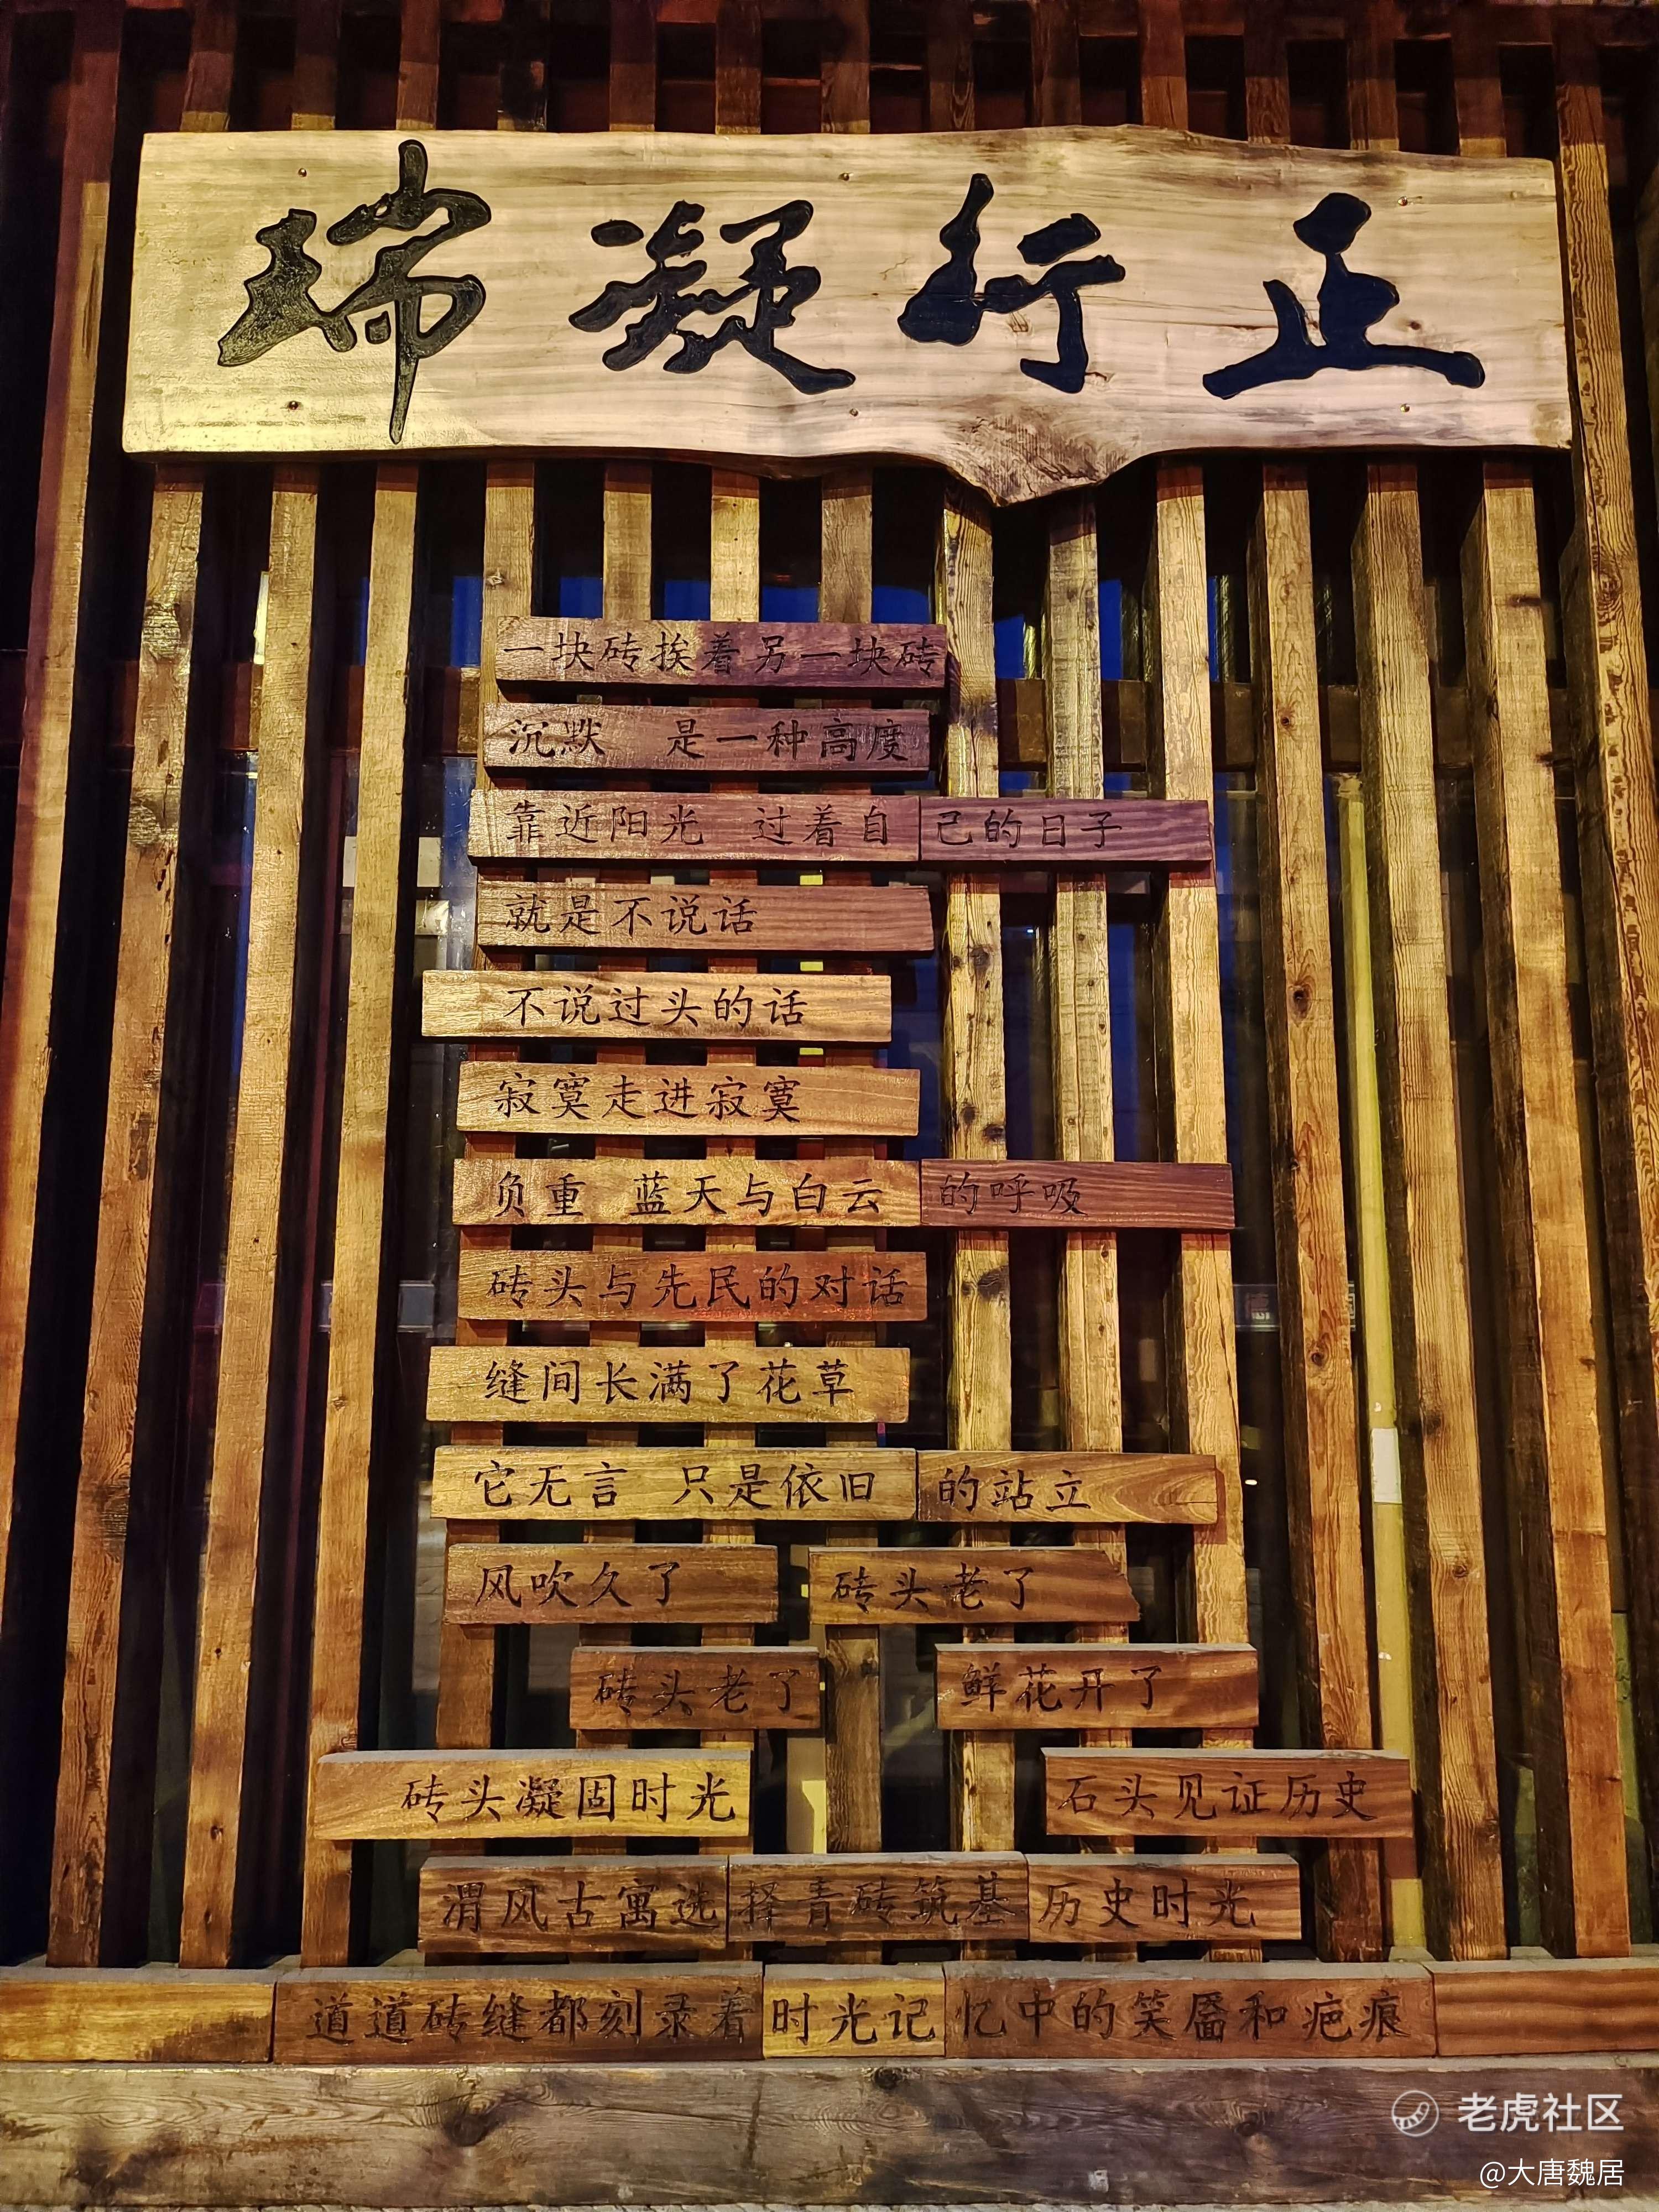 瑞凝行正
一块砖挨着另一块砖
沉默 是一种高度
靠近阳光 过着自己的日子
就是不说话
不说过头的话
寂寞走进寂寞
负重 蓝天与白云的呼吸
砖头与先民的对话
缝间长满了花草
它无言 只是依旧的站立
风吹久了 砖头老了
砖头老了 鲜花开了
砖头凝固时光 石头见证历史
渭风古寓选择青砖筑基历史时光
道道砖缝都刻录着时光记忆中的笑靥和疤痕
老虎社区
@大唐魏居